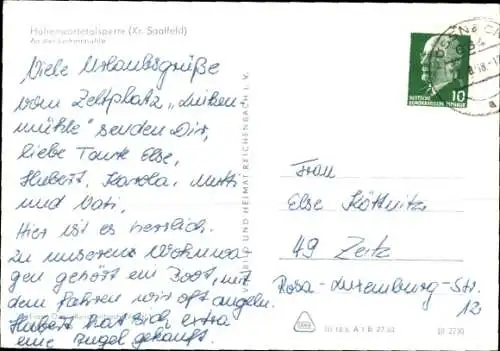 Hohenwartetalsperre (Kr. Saalfeld)
An der Linkenmühle
Viele Urlaubsgrüße
vom Zeltplatz „Linken-
mühle" senden Dir,
liebe Tante Else,
Hubert, Karola, Mutti
und Vati,
Hier ist es herrlich.
Zu unserem Wohnwa
gen gehört ein Boot, mit
dem fahren wir oft angeln.
Hubert hat sich extra
eine Angel gekauft.
BILD UND HEIMAT REICHENBACH I. V.
DEUTSCHE
DEMOKRATISCHE REPUBLIK
10
Frau
Else Köttnitz
49 Zeitz
Rosa-Luxemburg-Str.
12